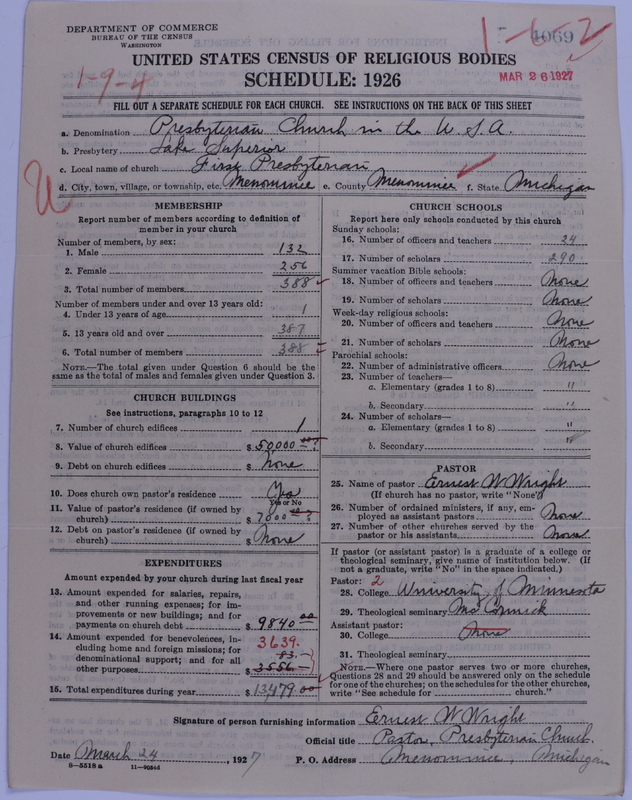 DEPARTMENT OF COMMERCE
BUREAU OF THE CENSUS
WASHINGTON
4069
1-6-2
MAR 26 1927
1-9-4
UNITED STATES CENSUS OF RELIGIOUS BODIES
SCHEDULE: 1926
FILL OUT A SEPARATE SCHEDULE FOR EACH CHURCH. SEE INSTRUCTIONS ON THE BACK OF THIS SHEET
a. Denomination Presbyterian Church in the U.S.A.
b. Presbytery Lake Superior
c. Local name of church First Presbyterian
d. City, town, village, or township, etc. Menominee e. County Menominee f. State Michigan
MEMBERSHIP
Report number of members according to definition of member in your church
Number of members, by sex:
1. Male 132
2. Female 256
3. Total number of members 388
Number of members under and over 13 years old:
4. Under 13 years of age 1
5. 13 years old and over 387
6. Total number of members 388
NOTE.—The total given under Question 6 should be the same as the total of males and females given under Question 3.
CHURCH BUILDINGS
See instructions, paragraphs 10 to 12
7. Number of church edifices 1
8. Value of church edifices $ 50000
9. Debt on church edifices $ None
10. Does church own pastor's residence Yes
Yes or No
11. Value of pastor's residence (if owned by church) $ 7000
12. Debt on pastor's residence (if owned by church) $ None
EXPENDITURES
Amount expended by your church during last fiscal year
13. Amount expended for salaries, repairs, and other running expenses; for improvements or new buildings; and for payments on church debt $ 9840 00
14. Amount expended for benevolences, including home and foreign missions; for denominational support; and for all other purposes
3639.
83.
$ 3556
15. Total expenditures during year $ 13,479.00
CHURCH SCHOOLS
Report here only schools conducted by this church
Sunday schools:
16. Number of officers and teachers 24
17. Number of scholars 290
Summer vacation Bible schools:
18. Number of officers and teachers None
19. Number of scholars None
Week-day religious schools:
20. Number of officers and teachers None
21. Number of scholars None
Parochial schools:
22. Number of administrative officers None
23. Number of teachers—
a. Elementary (grades 1 to 8) "
b. Secondary "
24. Number of scholars—
a. Elementary (grades 1 to 8) "
b. Secondary "
PASTOR
25. Name of pastor Ernest W Wright
(If church has no pastor, write "None")
26. Number of ordained ministers, if any, employed as assistant pastors None
27. Number of other churches served by the pastor or his assistants None
If pastor (or assistant pastor) is a graduate of a college or theological seminary, give name of institution below. (If not a graduate, write "No" in the space indicated.)
Pastor: 2
28. College University of Minnesota
29. Theological seminary McCormick
Assistant pastor:
30. College None
31. Theological seminary
NOTE.—Where one pastor serves two or more churches, Questions 28 and 29 should be answered only on the schedule for one of the churches; on the schedules for the other churches, write "See schedule for church."
Signature of person furnishing information Ernest W Wright
Official title Pastor, Presbyterian Church.
Date March 24, 1927 P. O. Address Menominee, Michigan
8-5518 a